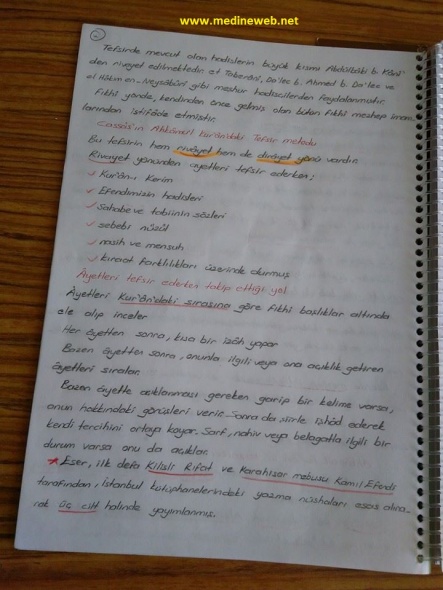 www.medineweb.net
Tefsirde mevcut olan hadislerin büyük kısmı Abdülbâki b. Kâni'
den rivayet edilmektedir. et Taberâni, Da'lec b. Ahmed b. Da'lec ve
el Hâkim en-Neysâbûri gibi meşhur hadisçilerden faydalanmıştır.
Fıkhî yönde, kendinden önce gelmiş olan bütün fıkhî mezhep imam-
larından istifade etmiştir.
Cassâs'ın Ahkâmu'l Kur'ân'daki Tefsir metodu
Bu tefsirin hem rivâyet hem de dirâyet yönü vardır.
Rivayet yönünden âyetleri tefsir ederken;
✓ Kur'ân-ı Kerim
✓ Efendimizin hadisleri
✓ Sahabe ve tabiinin sözleri
✓ sebebi nüzûl
✓ nasih ve mensuh
✓ kıraat farklılıkları üzerinde durmuş
Âyetleri tefsir ederken takip ettiği yol
Âyetleri Kur'ân'daki sırasına göre fıkhî başlıklar altında
ele alıp inceler
Her âyetten sonra, kısa bir izâh yapar
Bazen âyetten sonra, onunla ilgili veya ona açıklık getiren
âyetleri sıralar.
Bazen âyette açıklanması gereken garip bir kelime varsa,
onun hakkındaki görüşleri verir. Sonra da şiirle işhâd ederek
kendi tercihini ortaya koyar. Sarf, nahiv veya belagatla ilgili bir
durum varsa onu da açıklar.
★ Eser, ilk defa Kilisli Rifat ve Karahizar mebusu Kamil Efendi
tarafından, İstanbul kütüphanelerindeki yazma nüshaları esas alına-
rak üç cilt halinde yayımlanmış.